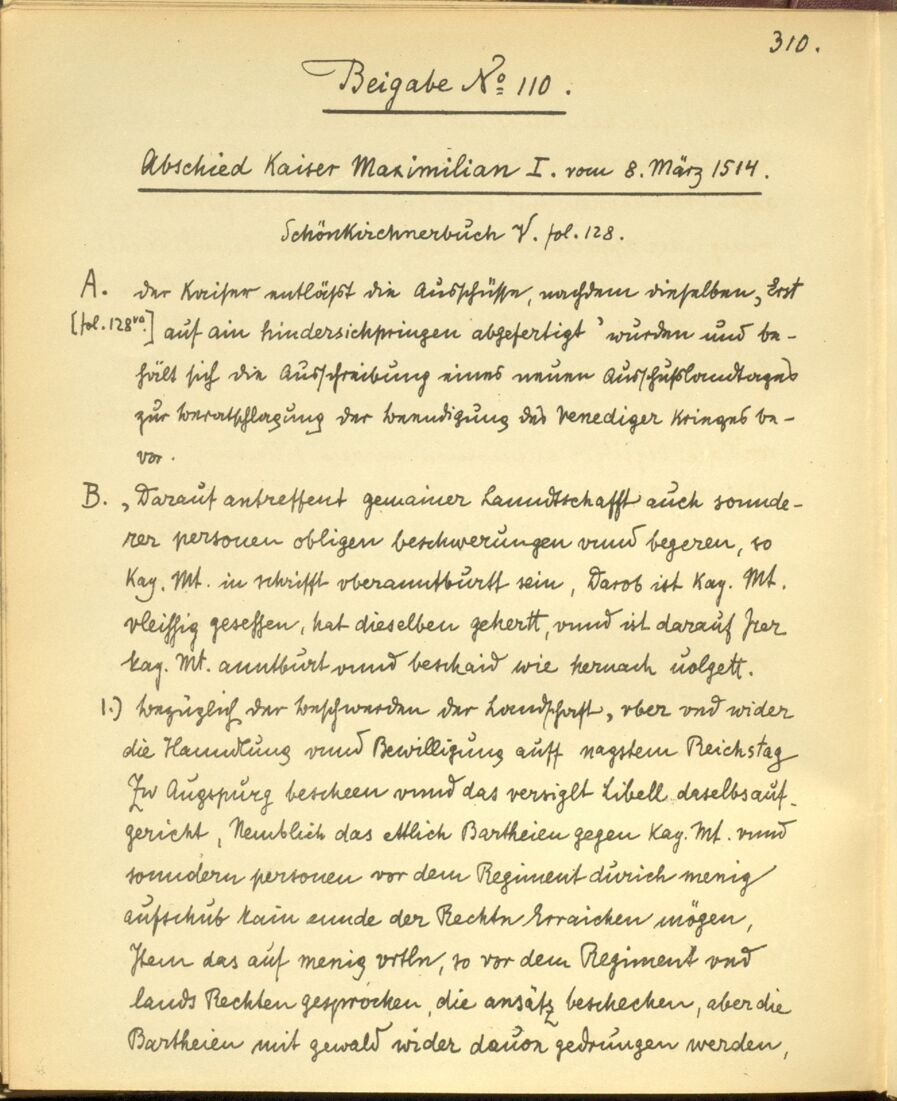 310.
Beigabe No 110.
Abschied Kaiser Maximilian I. vom 8. März 1514.
Schönkirchnerbuch V. fol. 128.
A. der Kaiser entläßt die Ausschüsse, nachdem dieselben „Erst
[fol. 128vo.] auf ain hindersichpringen abgefertigt‘ wurden und be-
hält sich die Ausschreibung eines neuen Ausschußlandtages
zur Beratschlagung der Beendigung des Venediger Krieges be-
vor.
B. „Darauf antreffent gemainer Lanndtschafft auch sonnde-
rer personen obligen beschwerungen vnnd begeren, so
Kay. Mt. in schrifft vberanntburtt sein, Darob ist Kay. Mt.
vleissig gesessen, hat dieselben gehertt, vnnd ist darauf Irer
kay. Mt. anntburt vnnd beschaid wie hernach uolgett.
1.) bezüglich der Beschwerden der Landschaft „vber vnd wider
die Hanndlung vnnd Bewilligung auff nagstem Reichstag
Zw Augspurg bescheen vnnd das versiglt Libell daselbs auf-
gericht, Nemblich das ettlich Bartheien gegen Kay. Mt. vnnd
sonndern personen vor dem Regiment durich menig
aufschub kain ennde der Rechtn Erraichen mögen,
Item das auf menig vrtln, so vor dem Regiment vnd
lands Rechten gesprochen, die ansätz beschechen, aber die
Bartheien mit gewald wider dauon gedrungen werden,